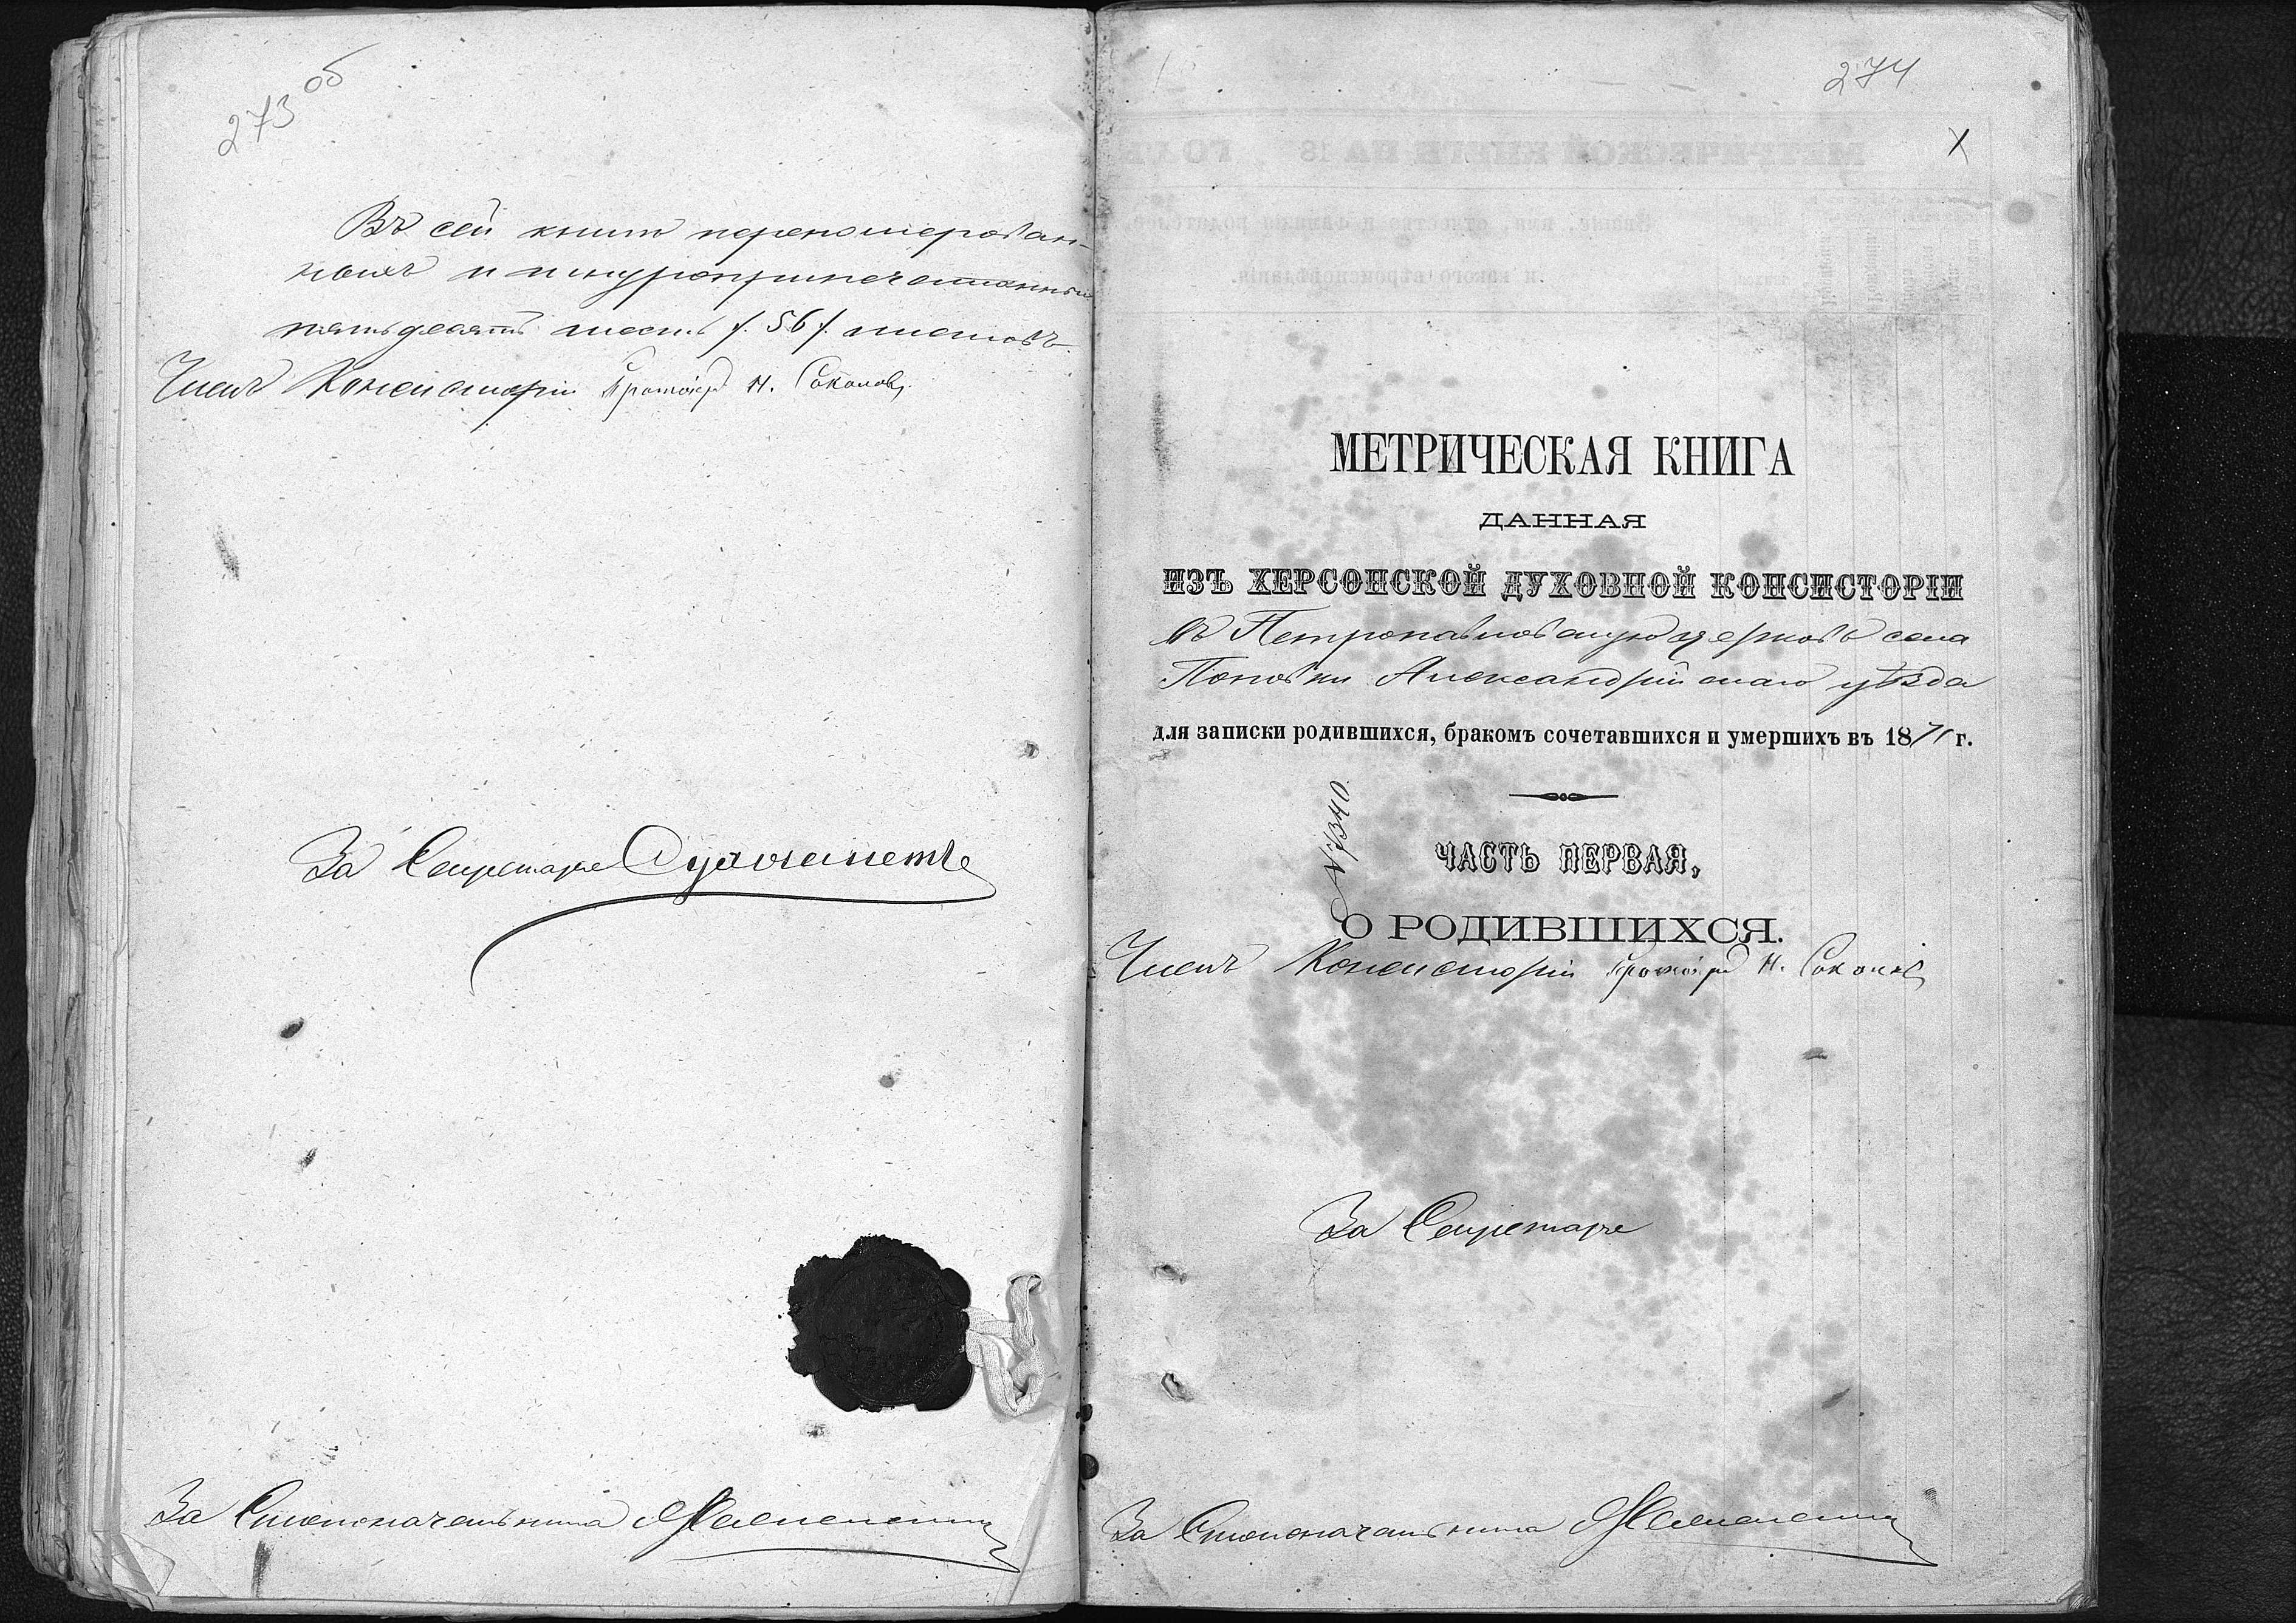 273 об
Въ сей книгѣ перенумерован-
ныхъ и шнуроприпечатанныхъ
пятьдесятъ шесть /. 56 /. листовъ.
Членъ Консисторіи Протоіер Н. Соколовъ
За Секретаря
За Столоначальника
274
МЕТРИЧЕСКАЯ КНИГА
ДАННАЯ
ИЗЪ ХЕРСОНСКОЙ ДУХОВНОЙ КОНСИСТОРІИ
въ Петропавловскую церковь села
Поповки Александрійскаго уѣзда
для записки родившихся, бракомъ сочетавшихся и умершихъ въ 1871 г.
№ 1340.
ЧАСТЬ ПЕРВАЯ,
О РОДИВШИХСЯ.
Членъ Консисторіи Протоіер Н. Соколовъ
За Секретаря
За Столоначальника